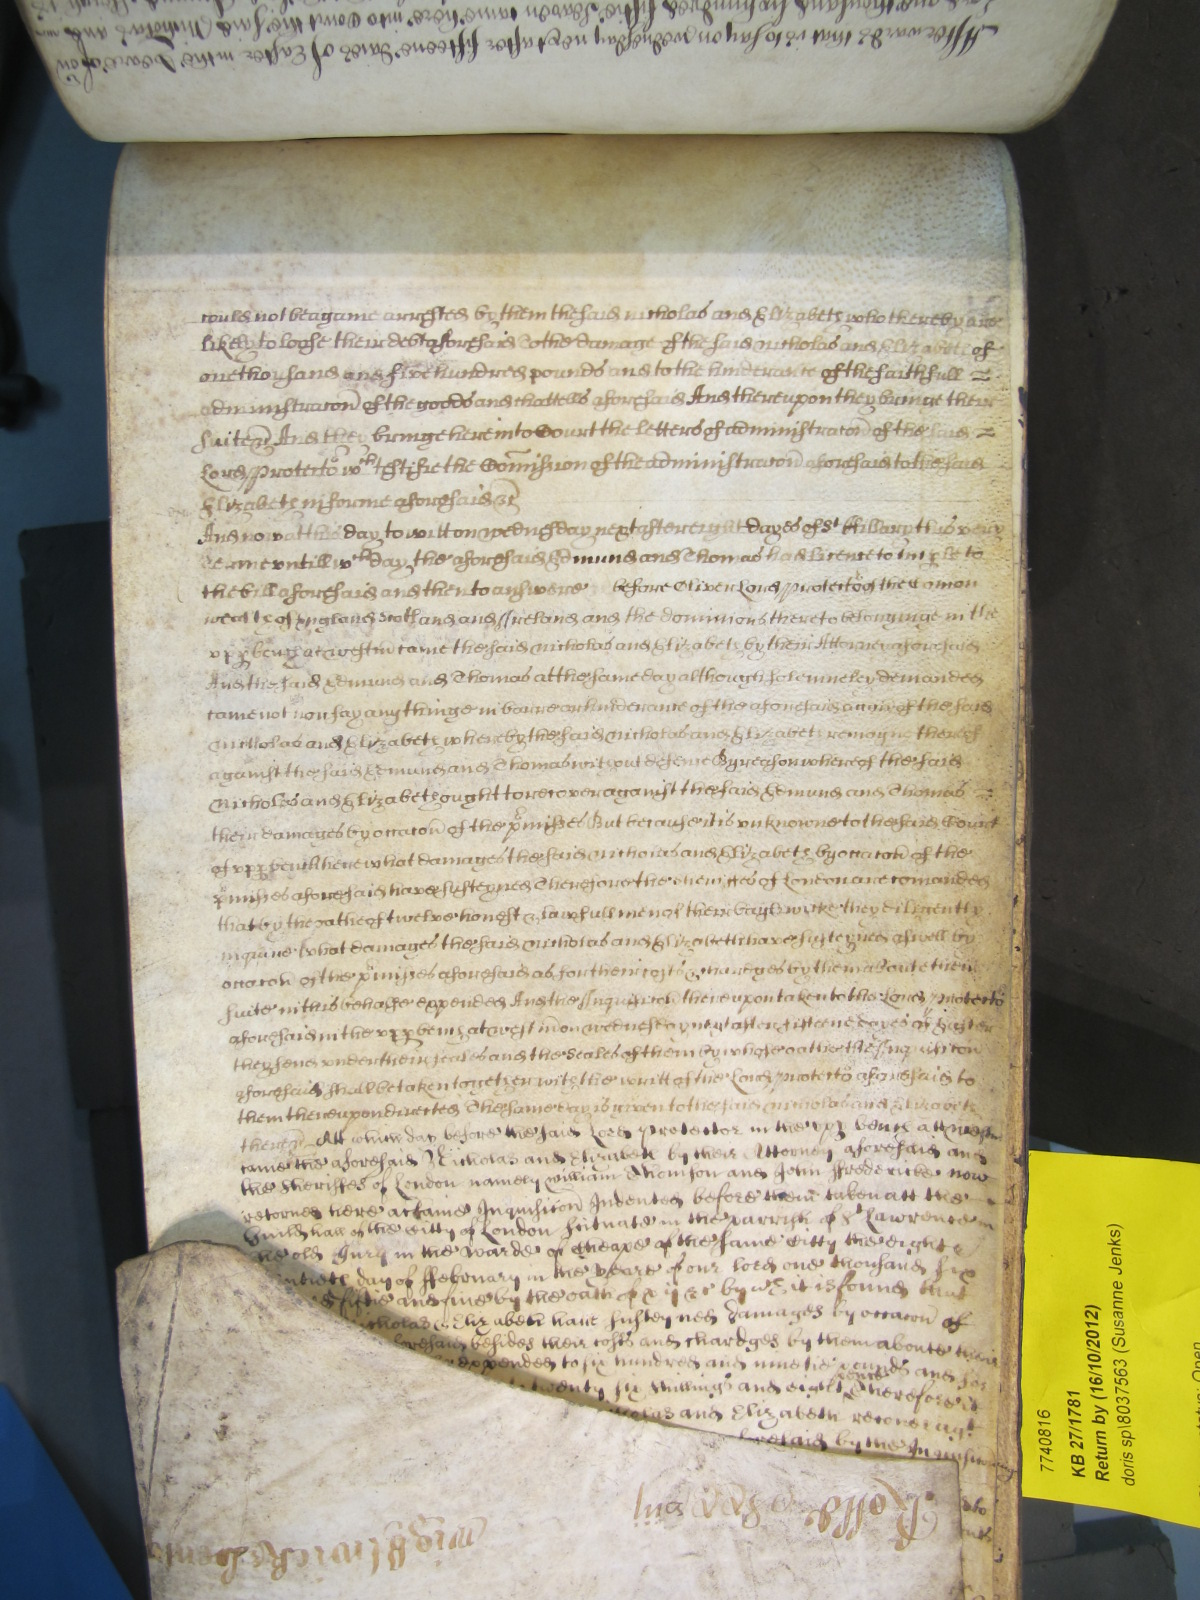 Afterwards that is to say on wednesday next after fifteene daies of Easter in the yeare of our
one thousand six hundred fiftie seaven came here into Court the said
could not be againe arrested by them the said Nicholas and Elizabeth who thereby are
likely to loose their debt aforesaid To the damage of the said Nicholas and Elizabeth of
one thousand and five hundred pounds and to the hinderance of the faithfull
administracon of the goods and chattells aforesaid And thereupon they bringe their
suite &c And they bringe here into Court the letters of administracon of the said
Lord Protector wch testifie the Comission of the administracon aforesaid to the said
Elizabeth in forme aforesaid &c
And now at this day to witt on wednesday next after eight dayes of St Hillary this very
Terme untill wch day the aforesaid Edmund and Thomas had licence to imple to
the bill aforesaid and then to answere before Oliver Lord Protector of the Comon
wealth of England Scotland and Ireland and the dominions thereto belonginge in the
upp bench at westm came the said Nicholas and Elizabeth by their Attorney aforesaid
And the said Edmund and Thomas at the same day although solemneley demanded
came not nor say any thinge in barre or hinderance of the aforesaid accon of the said
Nicholas and Elizabeth whereby the said Nicholas and Elizabeth remayne thereof
against the said Edmund and Thomas without defence By reason whereof the said
Nicholas and Elizabeth ought to recover against the said Edmund and Thomas
their damages by occacon of the pmisses But because it is unknowne to the said Court
of upp bench here what damages the said Nicholas and Elizabeth by occacon of the
pmisses aforesaid have susteyned Therefore the Sheriffes of London are comanded
that by the oathe of twelve honest & lawfull men of their baylywicke they diligently
inquire what damages the said Nicholas and Elizabeth have susteyned aswell by
occacon of the pmisses aforesaid as for their costs & chardges by them about their
suite in this behalfe expended And the Inquisicon thereupon taken to the Lord Protector
aforesaid in the upp bench at westm on wednesday next after fifteene dayes of Easter
they send under their seales and the seales of them by whose oathe the Inquisicon
aforesaid shall be taken together with the writt of the Lord Protector aforesaid to
them thereupon directed The same day is given to the said Nicholas and Elizabeth
there &c Att which day before the said Lord Protector in the upp bench att westm
came the aforesaid Nicholas and Elizabeth by their Attorney aforesaid and
the Sheriffes of London namely William Thomson and John Ffredericke now
retorned here a certaine Inquisicon Indented before them taken att the
Guildhall of the Citty of London scituate in the parrish of St Lawrence in
the old Jury in the Warde of Cheape of the same Citty the eight &
day of ffebruary in the yeare of our lord one thousand six
fiftie and five by the oath of xij &c by wch it is found that
Nicholas & Elizabeth have susteyned damages by occacon of
aforesaid besides their costs and chardges by them about their
expended to six hundred and ninetie pounds and for
twenty six shillings and eight pence Therefore it
Nicholas and Elizabeth recover agt
aforesaid by the Inquisicon
Rolle
Wightwicke
7740816
KB 27/1781
Return by (16/10/2012)
doris sp\8037563 (Susanne Jenks)
Open